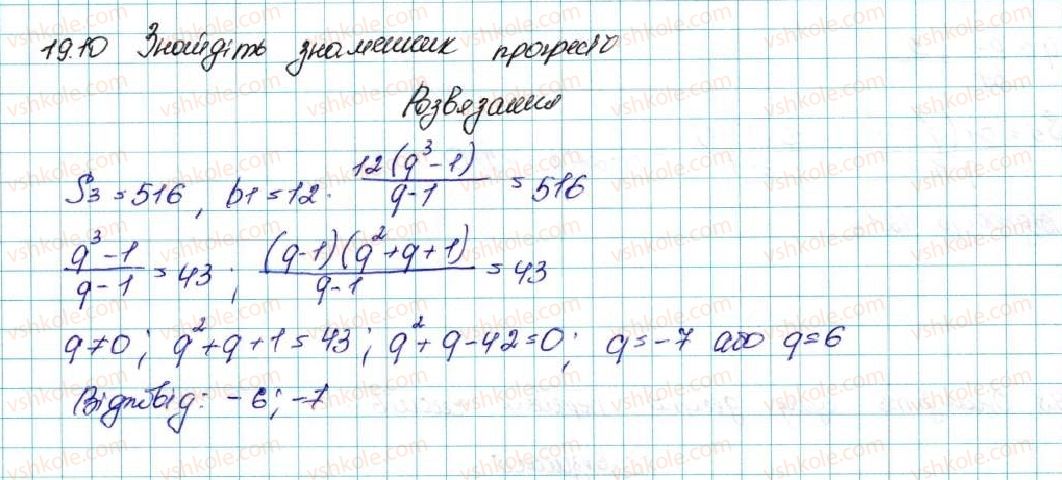 19.10 Знайдіть знаменник прогресії
Розвязання
S₃ = 516, b1 = 12. 12(q³-1)/q-1 = 516
q³-1/q-1 = 43; (q-1)(q²+q+1)/q-1 = 43
q≠0; q²+q+1=43; q²+q-42=0; q=-7 або q=6
Відповід: -6; -7